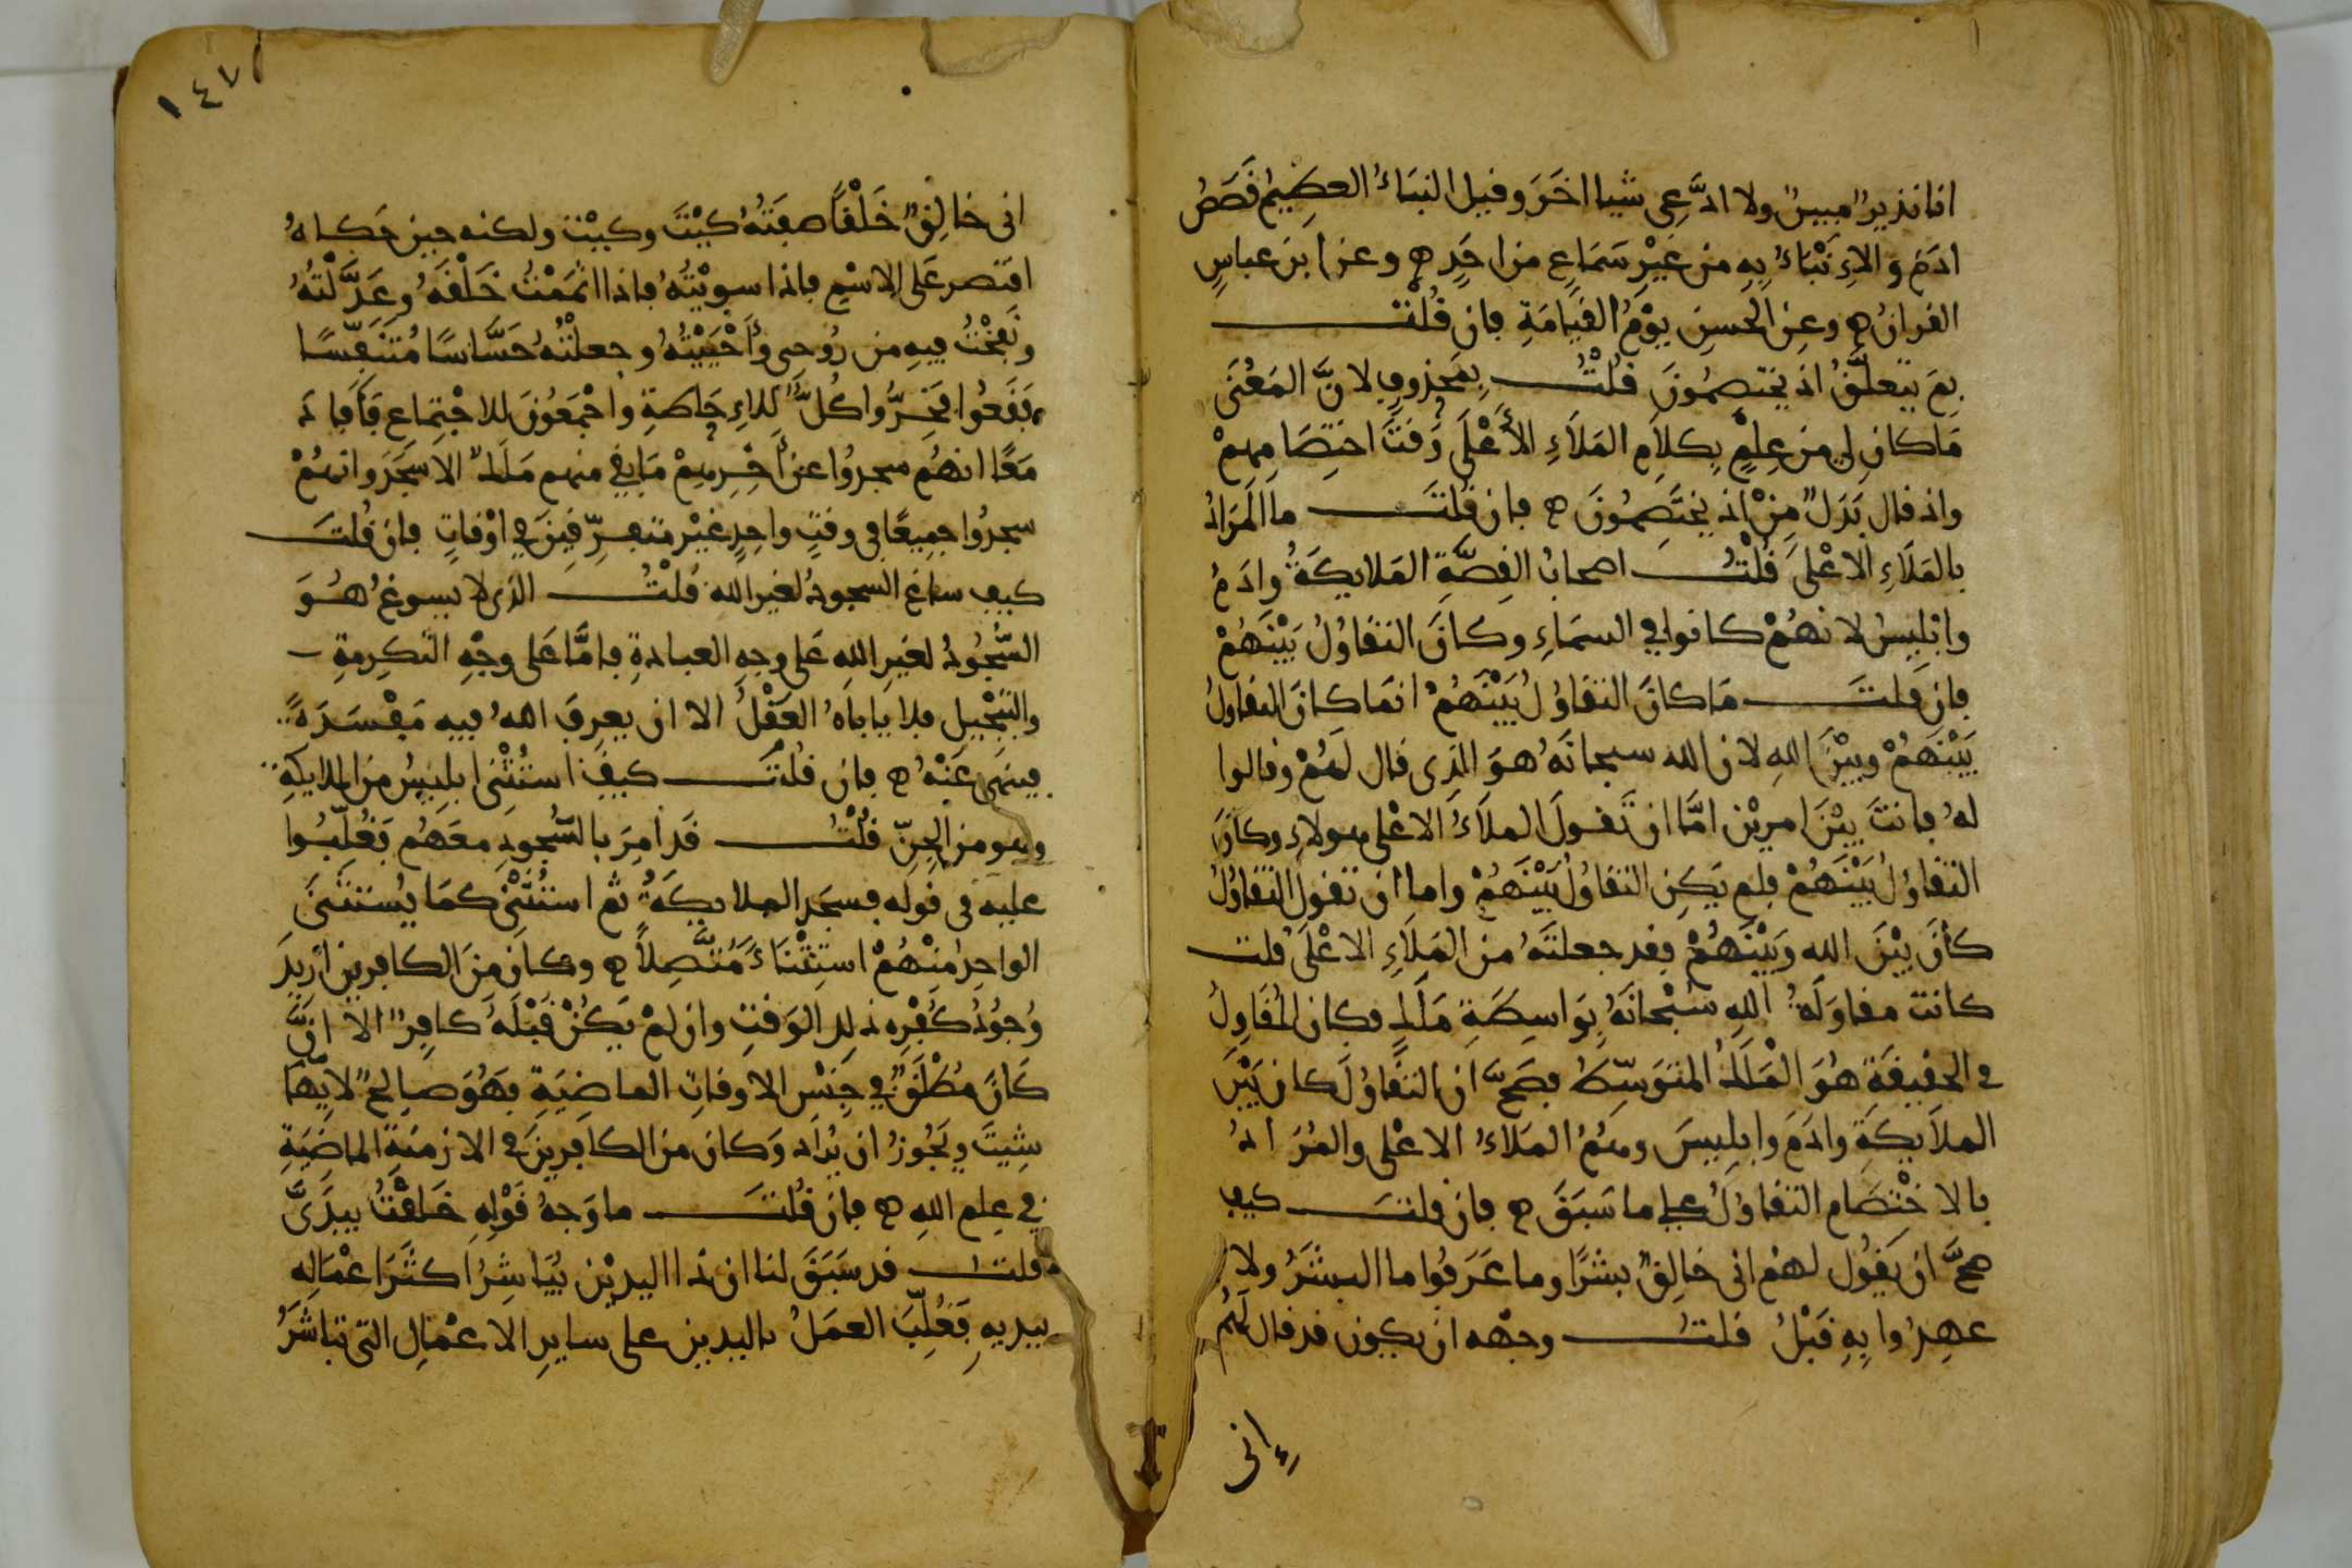 انا نذير مبين ولا ادّعى شيا اخر وقيل النباء العظيم قصص
ادم والانباء به من غير سماع من احد ه وعن ابن عباس
القران ه وعن الحسن يوم القيامة فان قلت
بم يتعلّق اذ يختصمون قلت بمحذوف لانّ المعنى
ما كان لى من علم بكلام الملاء الأعلى وقت اختصامهم
واذ قال بدل من اذ يختصمون ه فان قلت ما المراد
بالملاء الاعلى قلت اصحاب القصّة الملايكة وادم
وابليس لانهم كانوا في السماء وكان التقاول بينهم
فان قلت ما كان التقاول بينهم انما كان التقاول
بينهم وبين الله لان الله سبحانه هو الذى قال لهم وقالوا
له فانت بين امرين امّا ان تقول الملاء الاعلى هولاء وكان
التقاول بينهم فلم يكن التقاول بينهم واما ان تقول التقاول
كان بين الله وبينهم فقد جعلته من الملاء الاعلى قلت
كانت مقاولة الله سبحانه بواسطة ملك فكان المقاول
في الحقيقة هو الملك المتوسّط فصحّ ان التقاول كان بين
الملايكة وادم وابليس وهم الملاء الاعلى والمراد
بالاختصام التقاول على ما سبق ه فان قلت كيف
صحّ ان يقول لهم انى خالق بشرًا وما عرفوا ما البشر ولا
عهدوا به قبل قلت وجهه ان يكون قد قال لهم
إنى
١٤٧
انى خالق خلقًا صفته كيت وكيت ولكنه حين حكاه
اقتصر على الاسم فاذا سويته فاذا اتممت خلقه وعدّلته
ونفخت فيه من روحى وأحييته وجعلته حسّاسًا متنفّسًا
فقعوا فخرّوا كلّ للاحاطة واجمعون للاجتماع فافاد
معًا انهم سجدوا عن أخرهم ما بقي منهم ملك الا سجد وانهم
سجدوا جميعًا في وقت واحد غير متفرّقين في اوقات فان قلت
كيف ساغ السجود لغير الله قلت الذى لا يسوغ هو
السّجود لغير الله على وجه العبادة فامّا على وجه التكرمة
والتبجيل فلا ياباه العقل الا ان يعرف الله فيه مفسدة
فينهى عنه ه فان قلت كيف استثنى ابليس من الملايكة
وهو من الجنّ قلت قد امر بالسّجود معهم فغلّبوا
عليه في قوله فسجد الملايكة ثم استثنى كما يستثنى
الواحد منهم استثناء متّصلاً ه وكان من الكافرين اريد
وجود كفره ذلك الوقت وان لم يكن قبله كافر الا انّ
كان مطلق في جنس الاوقات الماضية فهو صالح لايّها
شيت ويجوز ان يراد وكان من الكافرين في الازمنة الماضية
في علم الله ه فان قلت ما وجه قوله خلقت بيدىّ
قلت قد سبق لنا ان ذا اليدين يباشر اكثر اعماله
بيديه فغلّب العمل باليدين على ساير الاعمال التى تباشر